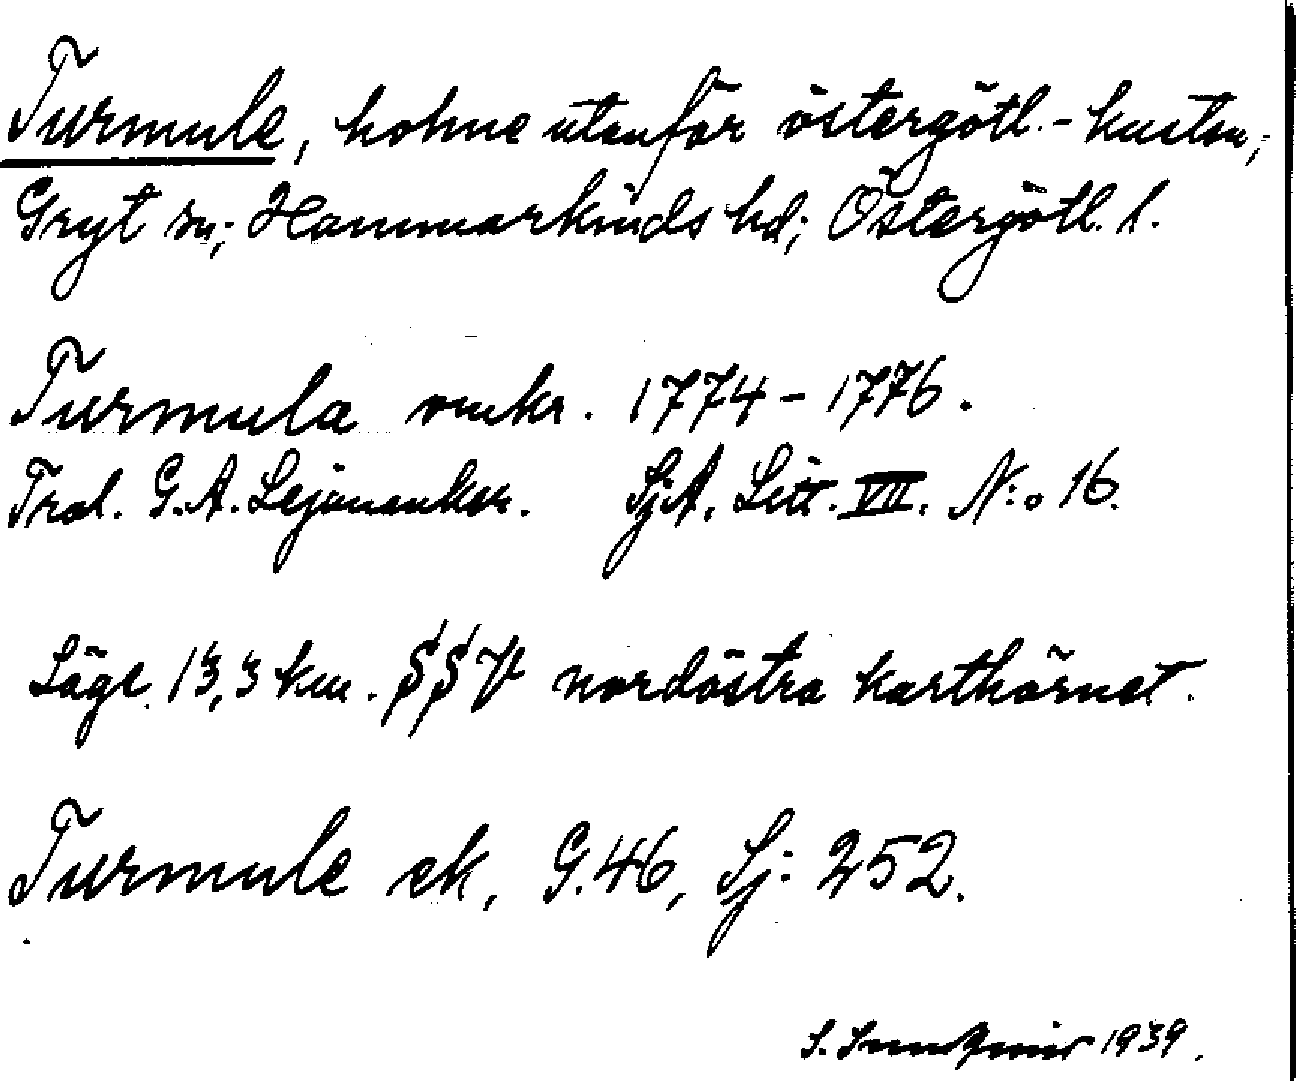 Turmule, holme utanför östergötl.-kusten,
Gryt sn; Hammarkinds hd; Östergötl. l.
Turmula omkr. 1774-1776.
Trol. G.A. Lejonanker. SjA. Litt. VII. N:o 16.
Läge 13,3 km. SSV nordöstra karthörnet.
Turmule ek, G.46, Sj: 252.
S. 1939.